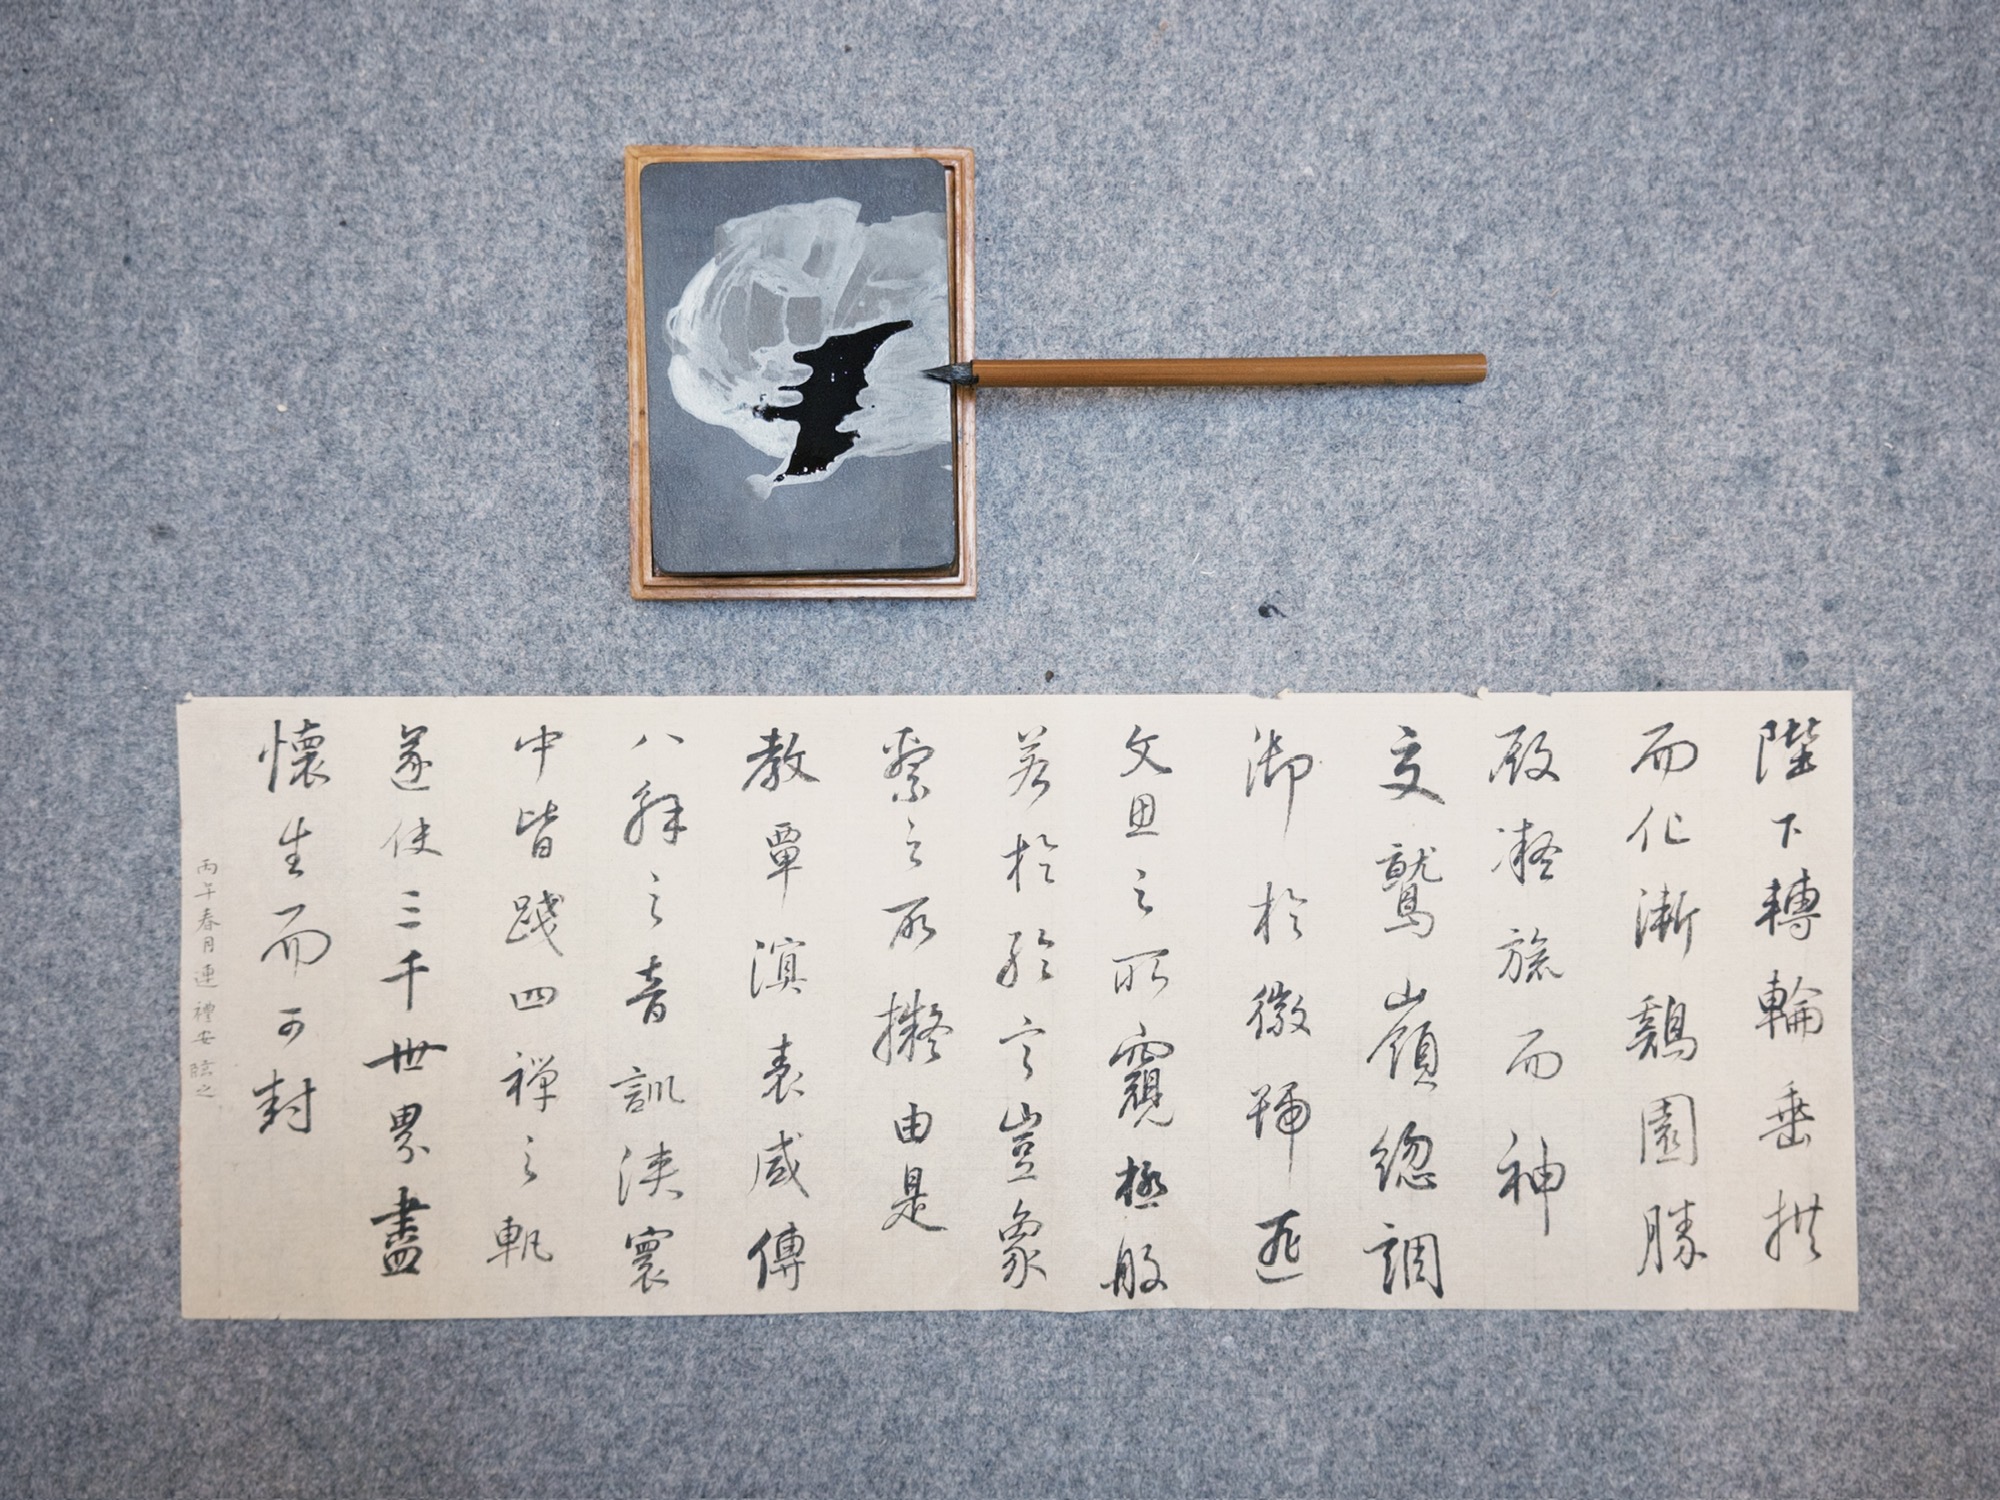 陛下轉輪垂拱
而化漸鷄園勝
殿凝旒而神
交鷲嶺緫調
御於徽號匪
文思之所窺極般
若於言豈象
繫之所擬由是
教覃溟表咸傳
八解之音訓浹寰
中皆踐四禪之軌
遂使三千世界盡
懷生而可封
丙午春月連禮安臨之